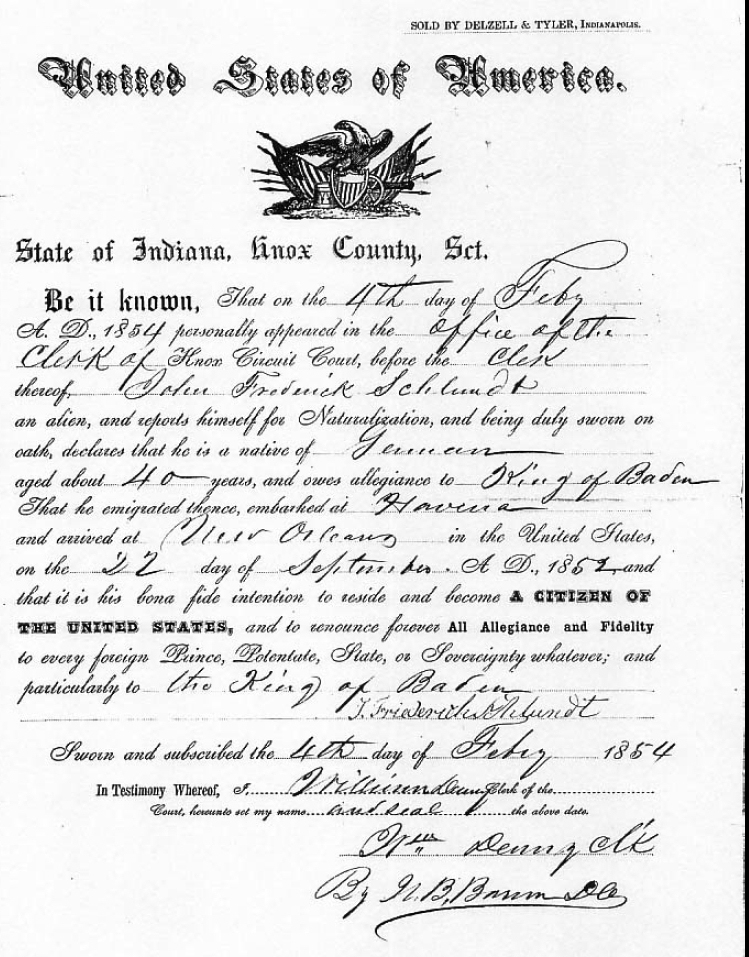 SOLD BY DELZELL & TYLER, INDIANAPOLIS.
United States of America.
State of Indiana, Knox County, Sct.
Be it known, That on the 4th day of Feby
A. D., 1854 personally appeared in the Office of the
Clerk of Knox Circuit Court, before the Clerk
thereof, John Frederick Schlundt
an alien, and reports himself for Naturalization, and being duly sworn on
oath, declares that he is a native of German
aged about 40 years, and owes allegiance to King of Baden
That he emigrated thence, embarked at Havena
and arrived at New Orleans in the United States,
on the 22 day of September. A. D., 1852 and
that it is his bona fide intention to reside and become A CITIZEN OF
THE UNITED STATES, and to renounce forever All Allegiance and Fidelity
to every foreign Prince, Potentate, State, or Sovereignty whatever; and
particularly to the King of Baden
J. Friederich Schlundt
Sworn and subscribed the 4th day of Feby 1854
In Testimony Whereof, I William Denny Clerk of the
Court, hereunto set my name and seal the above date.
Wm Denny Clk
By N. B.